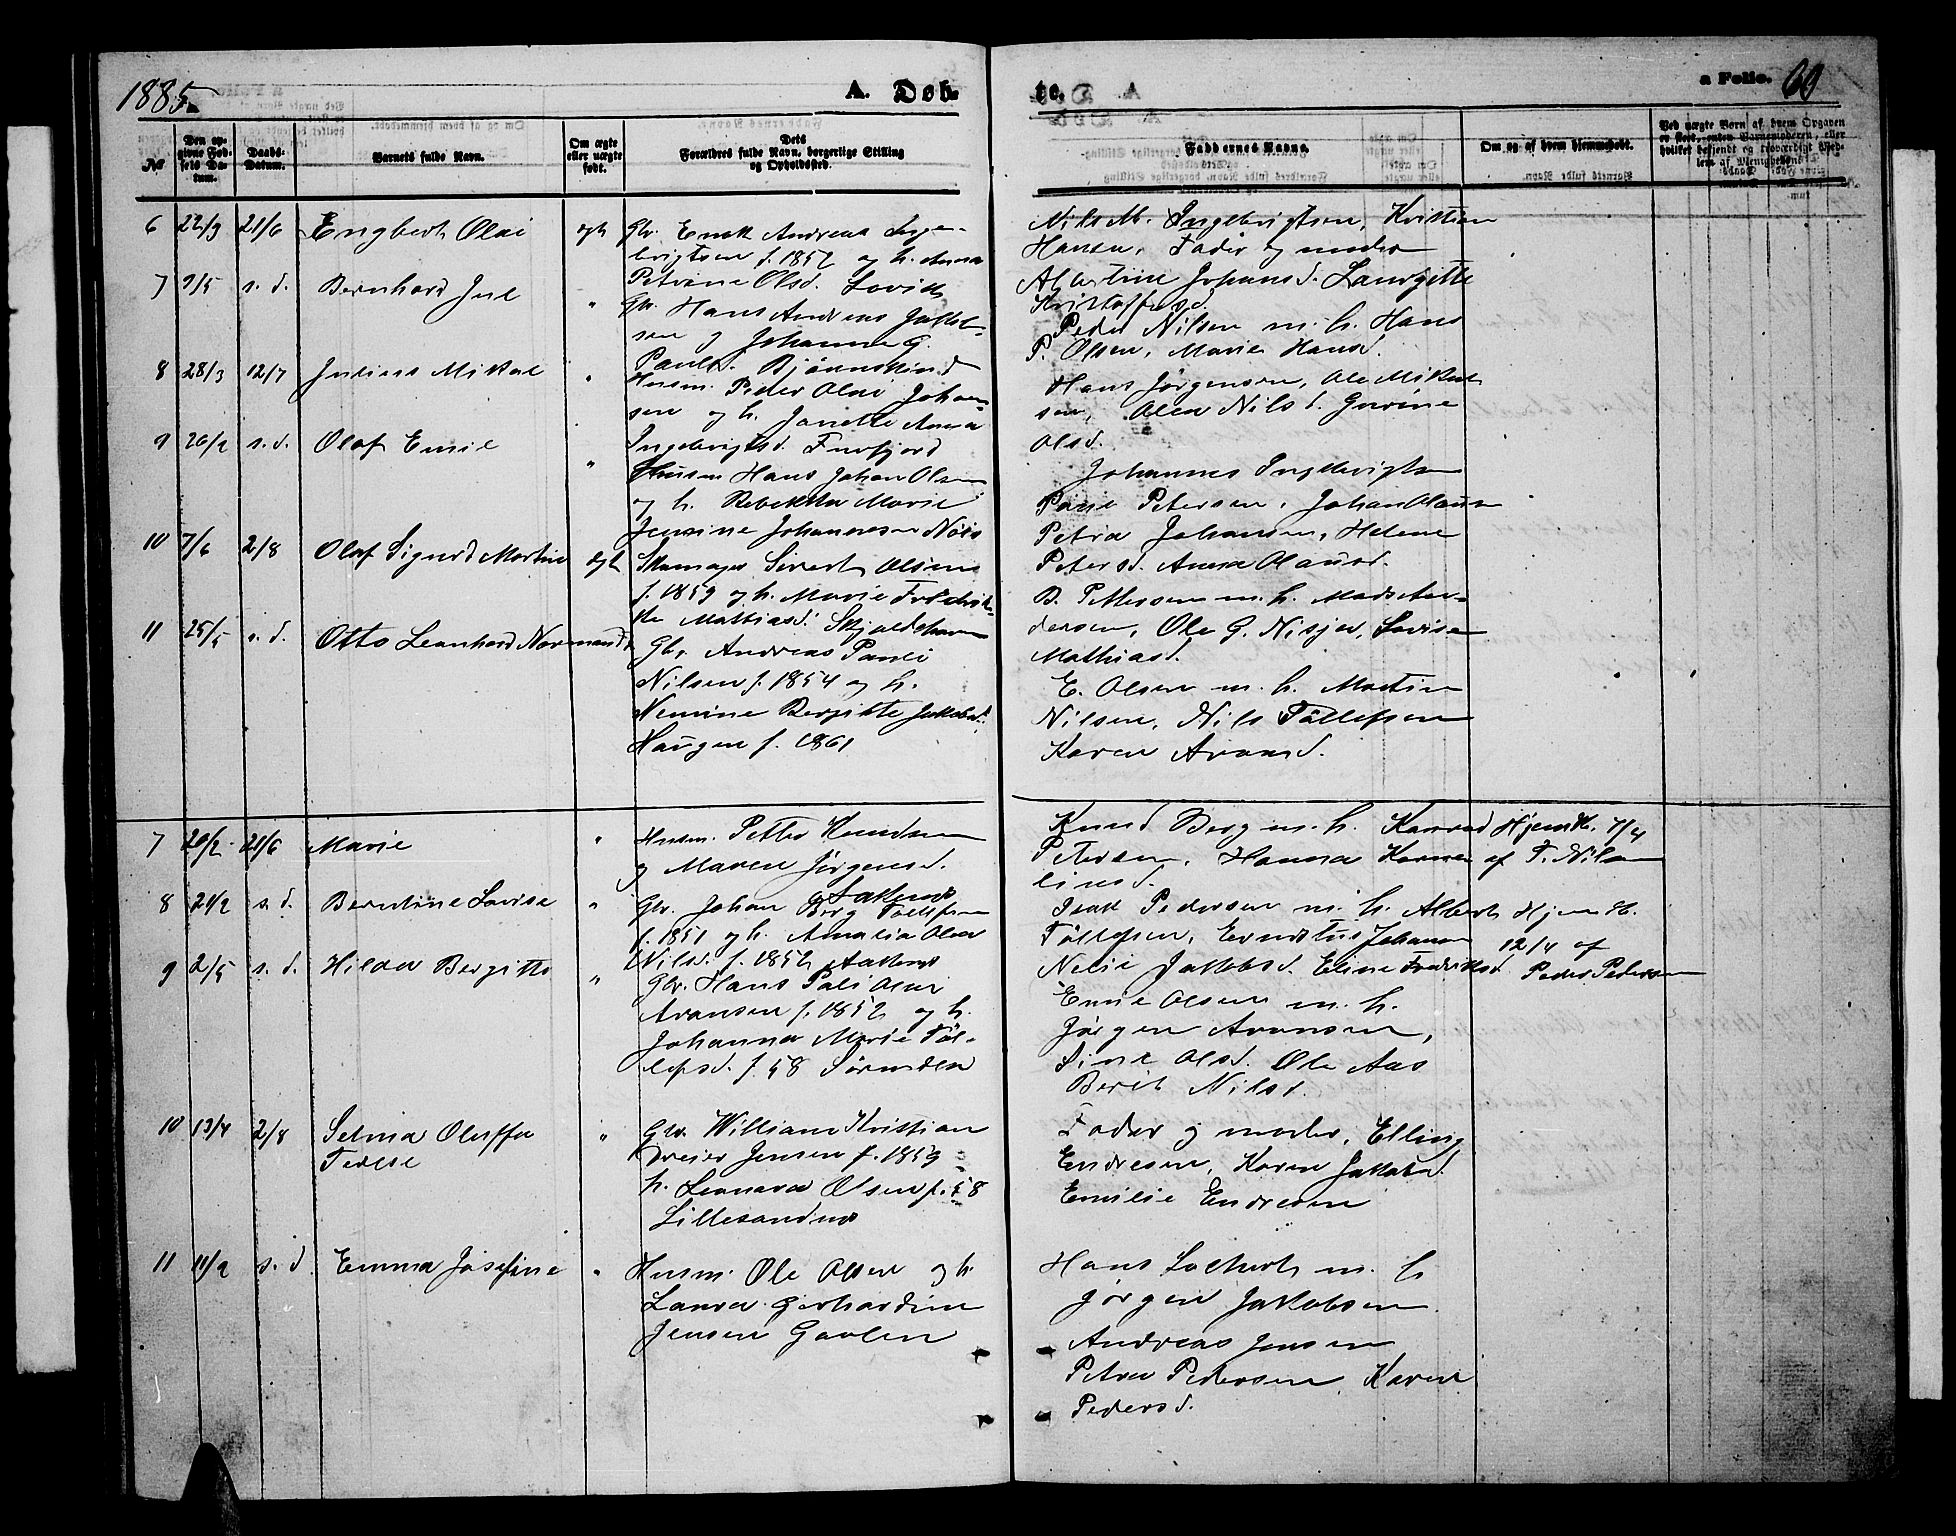 1885.
A. Døb-
te.
a Folio. 60
No
Den op-
givne Fød-
sels Da-
tum.
Daabs-
Datum.
Barnets fulde Navn.
Om ægte
eller uægte
født.
Dets
Forældres fulde Navn, borgerlige Stilling
og Opholdssted.
Faddernes Navne.
Om og af hvem hjemmedøbt.
6 22/3 21/6 Engbert Olai egt Gbr. Enok Andreas Inge-
brigtsen f. 1852 og h. Anna
Petrine Olsd. Lovik
Nils M. Ingebrigtsen, Kristian
Hansen, Fader og moder
Albertine Johansd. Laurgette
Kristoffersd.
7 9/5 s. d. Bernhard Jul " Gbr. Hans Andreas Jakob-
sen og Johanna G.
Paulsd. Bjørnskind
Peder Nilsen m. h. Hans
P. Olsen, Marie Hansd.
8 28/3 12/7 Julius Mikal " Husm. Peder Olai Johan-
sen og h. Janette Anna
Ingebrigtsd. Fusfjord
Hans Jørgensen, Ole Mikal-
sen, Olea Nilsd. Gurine
Olsd.
9 26/2 s. d. Olaf Emil " Husm Hans Johan Olsen
og h. Rebekka Marie
Jensine Johannesen Nøis
Johannes Ingebrigtsen
Paul Petersen, Johan Olausen
Petra Johansen, Helene
Petersd. Anna Olausd.
10 7/6 2/8 Olaf Sigurd Martin egt Skomager Sivert Olsen
f. 1859 og h. Marie Fredrik-
ke Mattiasd. Skjoldehavn
B. Pettersen m. h. Mads An-
dersen, Ole G. Lovise
Mathiasd.
11 25/5 s. d. Otto Leonhard Normand " Gbr. Andreas Pauli
Nilsen f. 1854 og h.
Nemine Bergitte Jakobsd.
Haugen f. 1861
E. Olsen m. h. Martin
Nilsen, Nils Tollefsen
Karen Aronsd.
7 20/2 21/6 Marie " Husm. Petter Knudsen
og Maren Jørgensd.
Knud Berg m. h. Konrad
Petersen, Hanna Karne-
liusd.
Hjemdt. 7/4
af T. Nilsen
8 21/2 s. d. Berntine Lovise " Gbr. Johan Berg Tollefsen
f. 1851 og h. Amalia Olea
Nilsd. f. 1852
Isak Pedersen m. h. Albert
Tollefsen, Johansen
Nelie Jakobsd. Eline Fredriksd.
Hjemdt.
12/4 af
Peder Pedersen
9 2/5 s. d. Hilda Bergitte " Gbr. Hans Pali Olai
Aronsen f. 1852 og h.
Johanna Marie Tol-
lefsd. f. 58
Emil Olsen m. h.
Jørgen Aronsen,
Sine Olsd. Ole Aas
Berit Nilsd.
10 13/4 2/8 Selma Oluffa " Gbr. William Kristian
Dreier Jensen f. 1859
h. Leonara Olsen f. 58
Lillesandnes
Fader og moder, Elling
Endresen, Karen Jakobsd.
Emilie Endresen
11 11/2 s. d. Emma Josefine " Husm. Ole Olsen og h.
Laura Gerhardine
Jensen Gavlen
Hans m. h.
Jørgen Jakobsen
Andreas Jensen
Petra Pedersen, Karen
Pedersd.